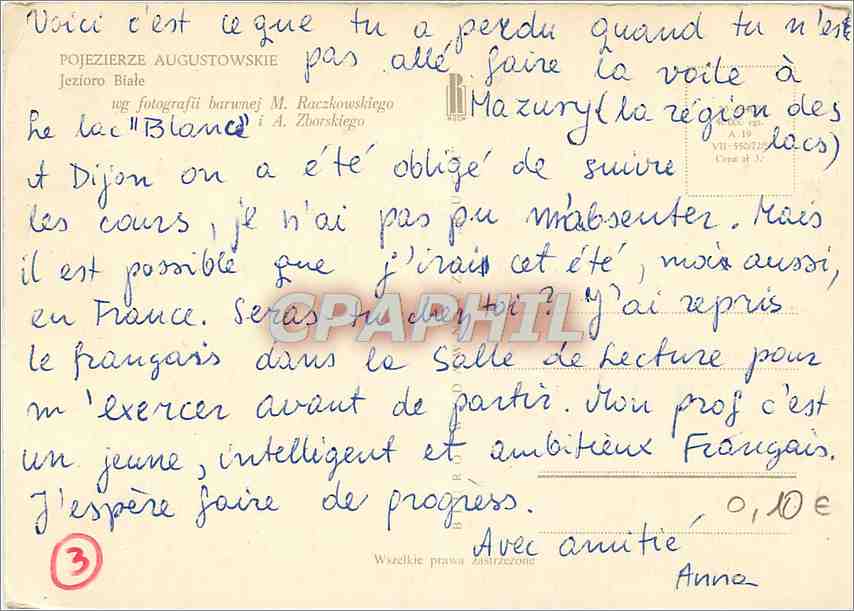 Voici c'est ce que tu a perdu quand tu n'est
POJEZIERZE AUGUSTOWSKIE
pas allé faire la voile à
Jezioro Białe
wg fotografii barwnej M. Raczkowskiego
i A. Zborskiego
Mazury (la région des
lacs)
Le lac "Blanc"
A 19
VII-550/72/5
Cena zł 3,-
A Dijon on a été obligé de suivre
les cours, je n'ai pas pu m'absenter. Mais
il est possible que j'irais cet été, moi aussi,
en France. Seras-tu chez toi? J'ai repris
CPAPHIL
le français dans la Salle de Lecture pour
m'exercer avant de partir. Mon prof c'est
un jeune, intelligent et ambitieux Français.
J'espère faire de progrèss.
0,10 €
Avec amitié,
Anna
3
Wszelkie prawa zastrzeżone